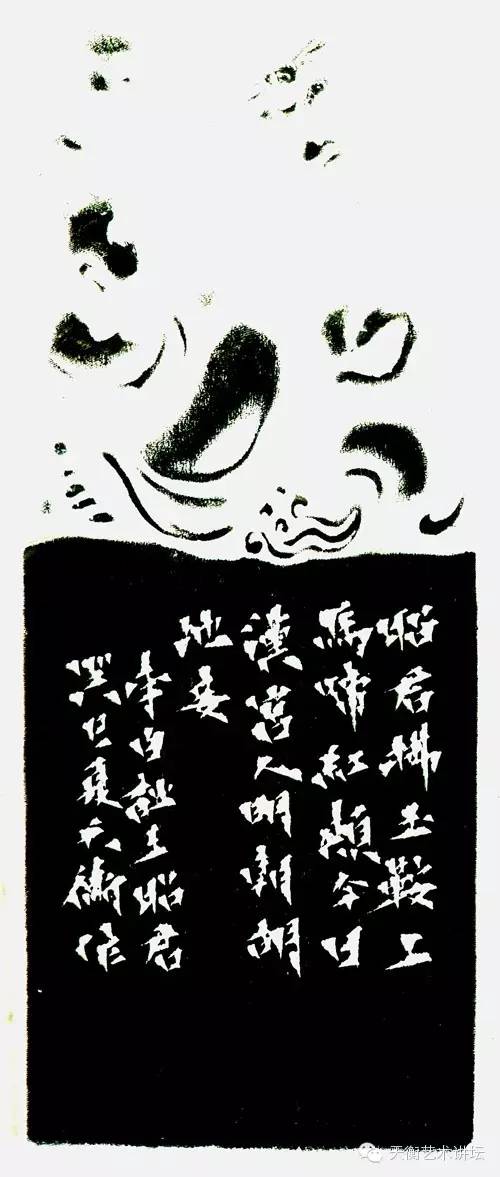 昭君拂玉鞍上
馬啼紅頰今日
漢宮人明朝胡
地妾
李白詩王昭君
癸巳夏天衡作
天衡艺术讲坛